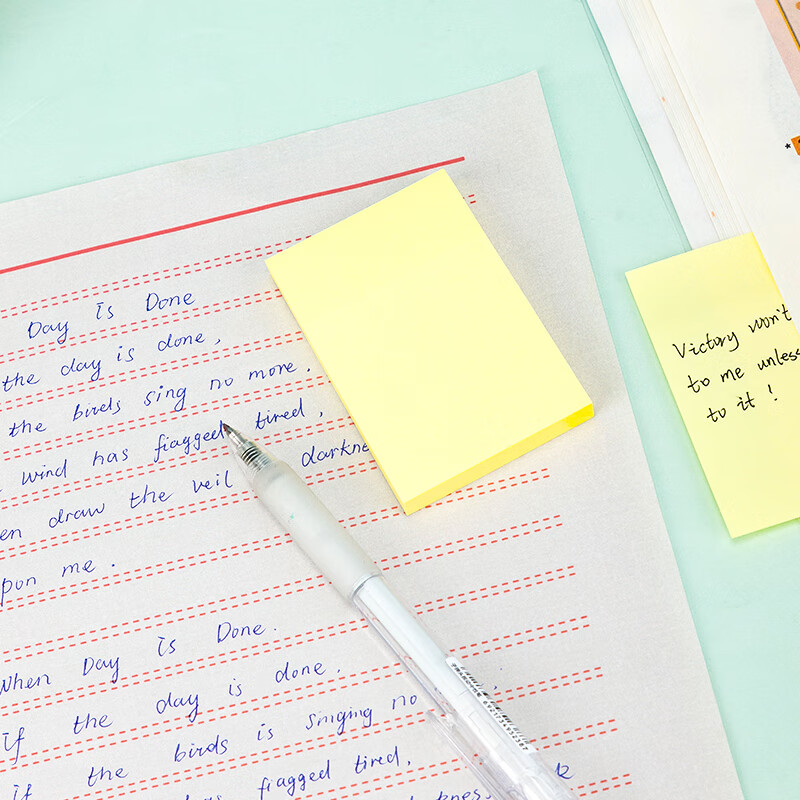 Day is Done
the day is done,
the birds sing no more.
wind has fiagged tired,
en draw the veil darkne
pon me.
When Day is Done.
if the day is done.
if the birds is singing no
fiagged tired,
Victory won't
to me unless
to it!